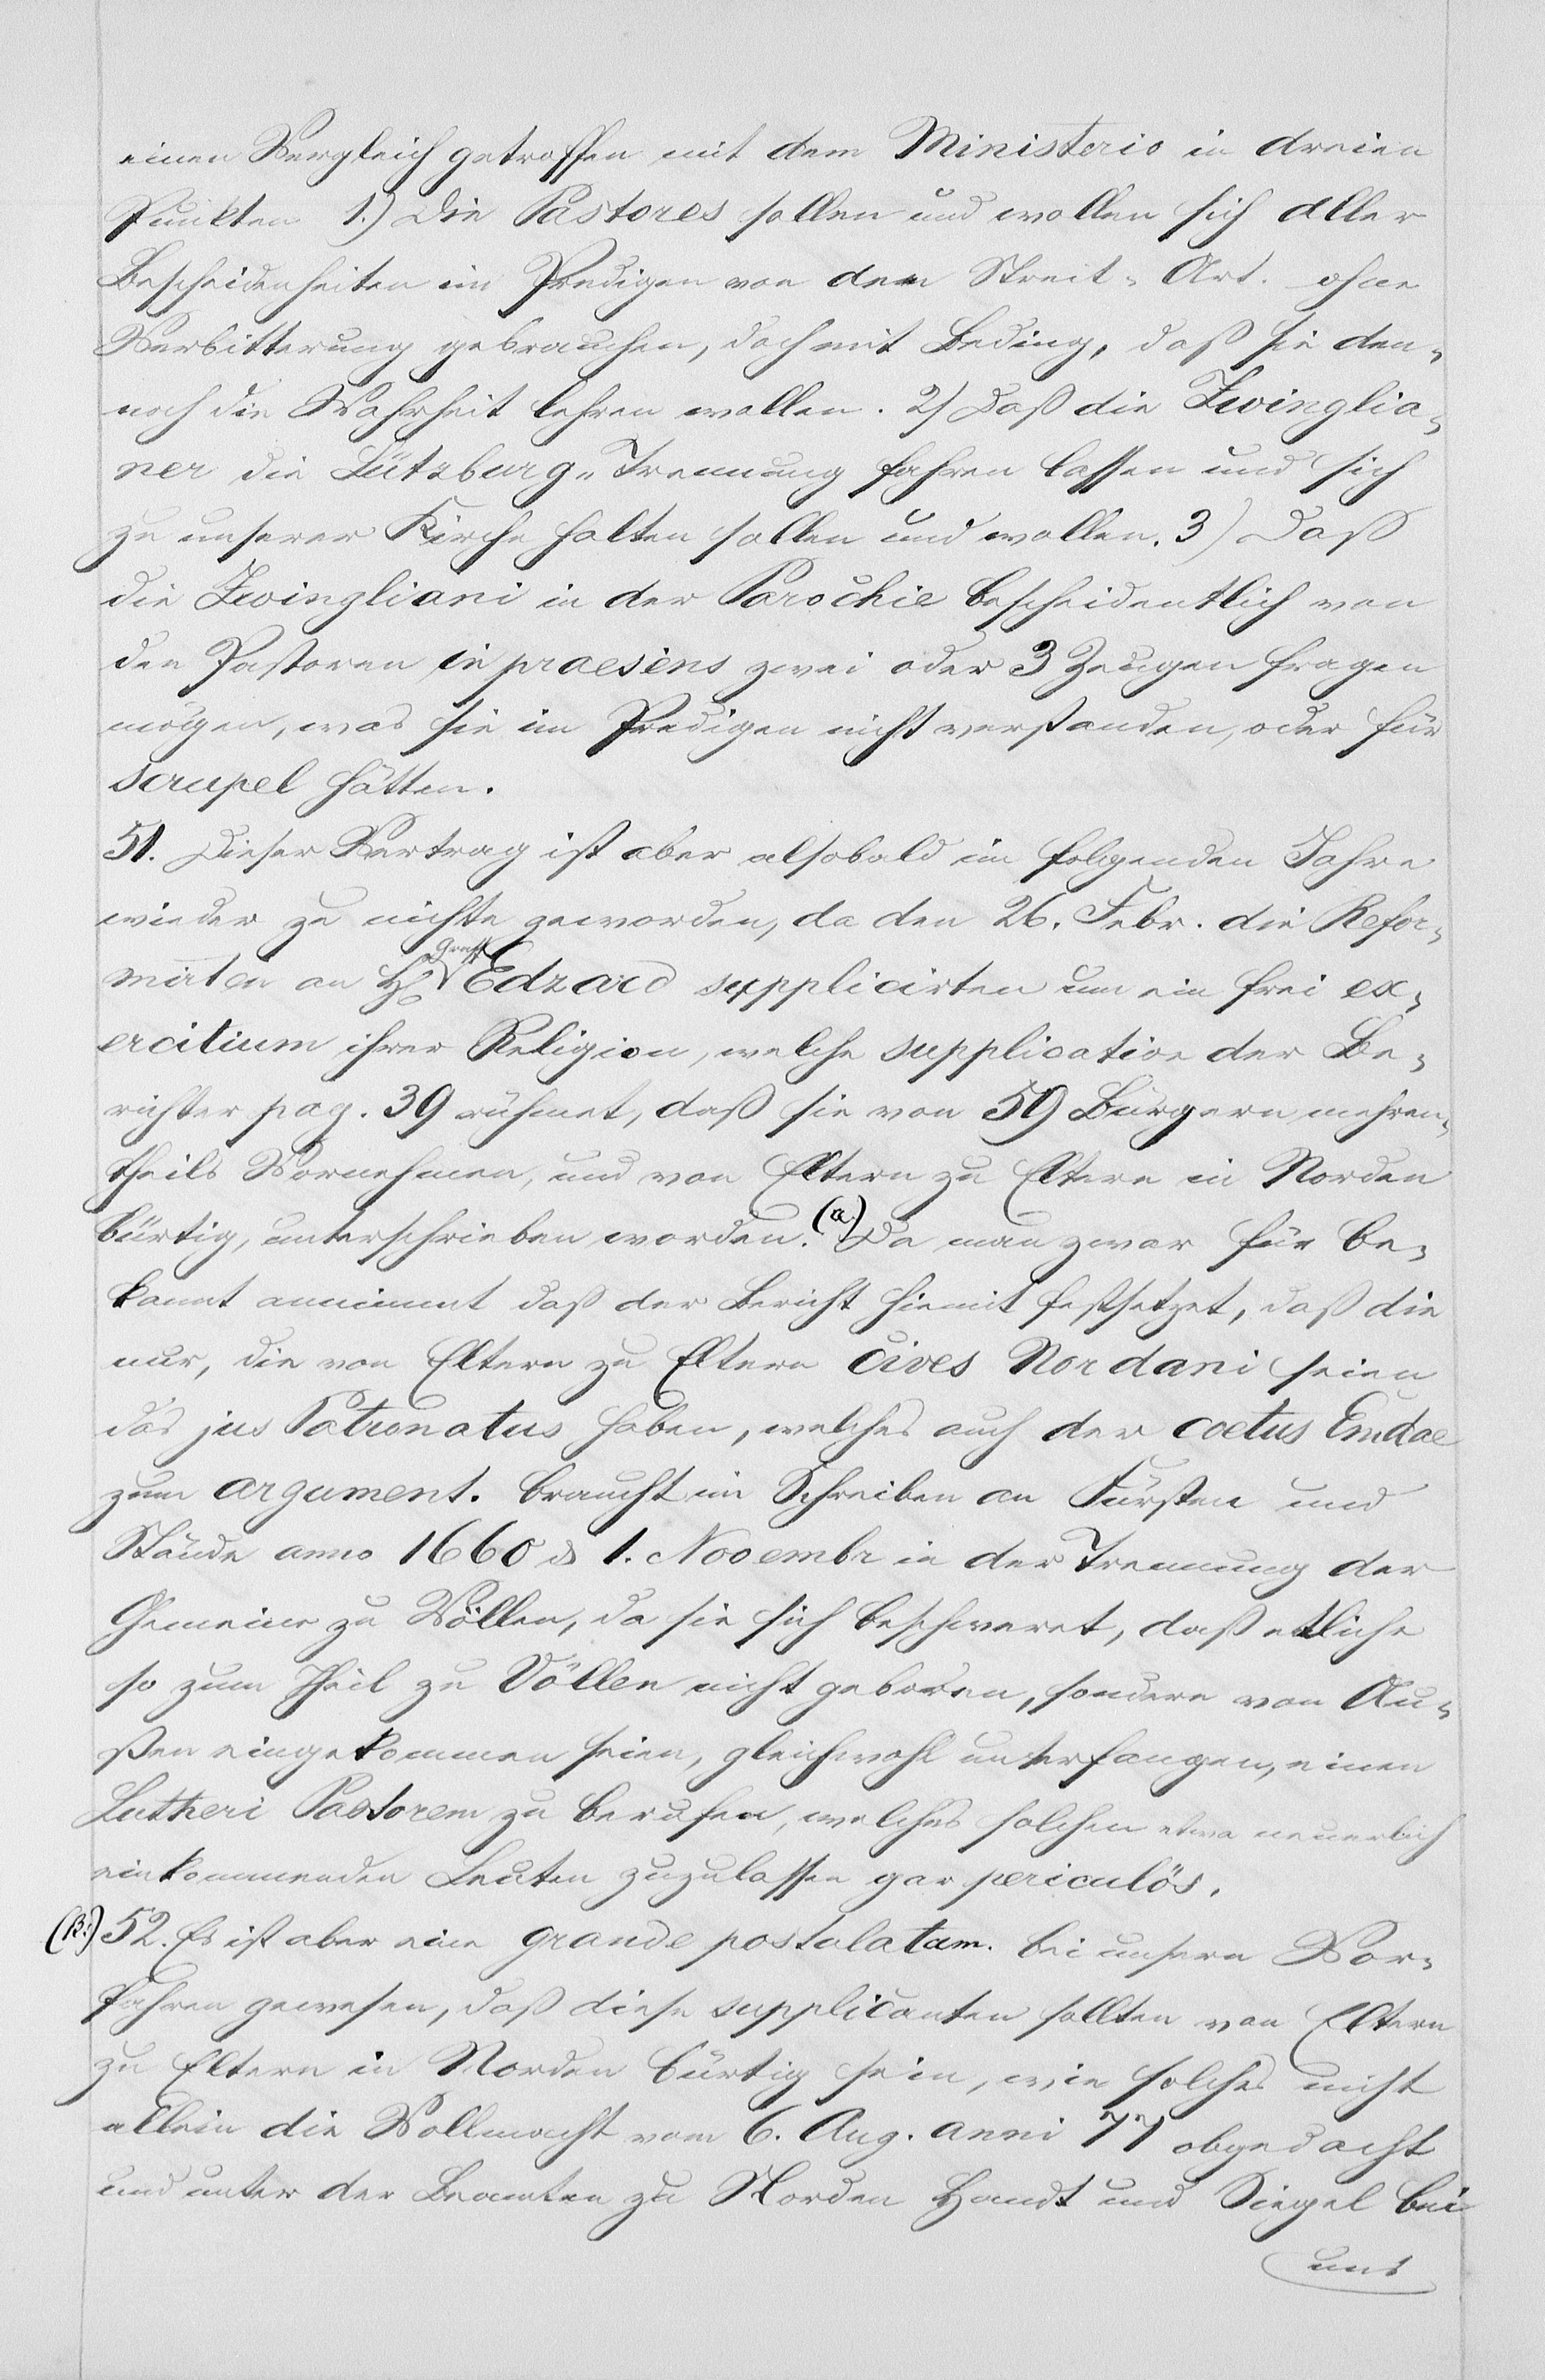 einen Vergleich getroffen mit dem Ministerio in dreien
Punkten 1.) Die Pastores sollen und wollen sich aller
Bescheidenheiten im Predigen von dem Streit-Art. ohne
Verbitterung gebrauchen, doch mit Beding, daß sie den-
noch die Wahrheit lehren wollen. 2) Daß die Zwinglia-
ner die Lützburg. Trennung fahren lassen und sich
zu unserer Kirche halten sollen und wollen. 3) Daß
die Zwingliani in der Parochie bescheidentlich von
den Pastoren in praesens zwei oder 3 Zeugen fragen
mögen, was sie im Predigen nicht verstanden, oder für
scrupel hätten.
51. Dieser Vertrag ist aber alsobald im folgenden Jahre
wieder zu nichte geworden, da den 26. Febr. die Refor-
mirten an H. Graff Edzard supplicirten um ein frei ex-
ercitium ihrer Religion, welche supplication der Be-
richter pag. 39 rühmet, daß sie von 59 Bürgern mehren-
theils Vornehmen, und von Eltern zu Eltern in Norden
bürtig, unterschrieben worden. (a.) Da man zwar für be-
kannt annimmt daß der Bericht hiemit festsetzet, daß die
nur, die von Eltern zu Eltern cives Nordani seien
das jus Patronatus haben, welches auch der coetus Emdae
zum argument. braucht im Schreiben an Fürsten und
Stände anno 1660 d 1. Novembr in der Trennung der
Gemeine zu Völlen, da sie sich beschweret, daß etliche
so zum Theil zu Völlen nicht geboren, sondern von Au-
ßen eingekommen seien, gleichwohl unterfangen, einen
Lutheri Pastorem zu berufen, welches solchen etwa neuerlich
einkommenden Leuten zuzulassen gar periculös.
(B.) 52. Es ist aber eine grande postulatam. bei unsern Vor-
fahren gewesen, daß diese supplicanten sollten von Eltern
zu Eltern in Norden bürtig sein, wie solches nicht
allein die Vollmacht vom 6. Aug. anni 77 obgedacht
und unter der Beamten zu Norden Handt und Siegel bei
uns